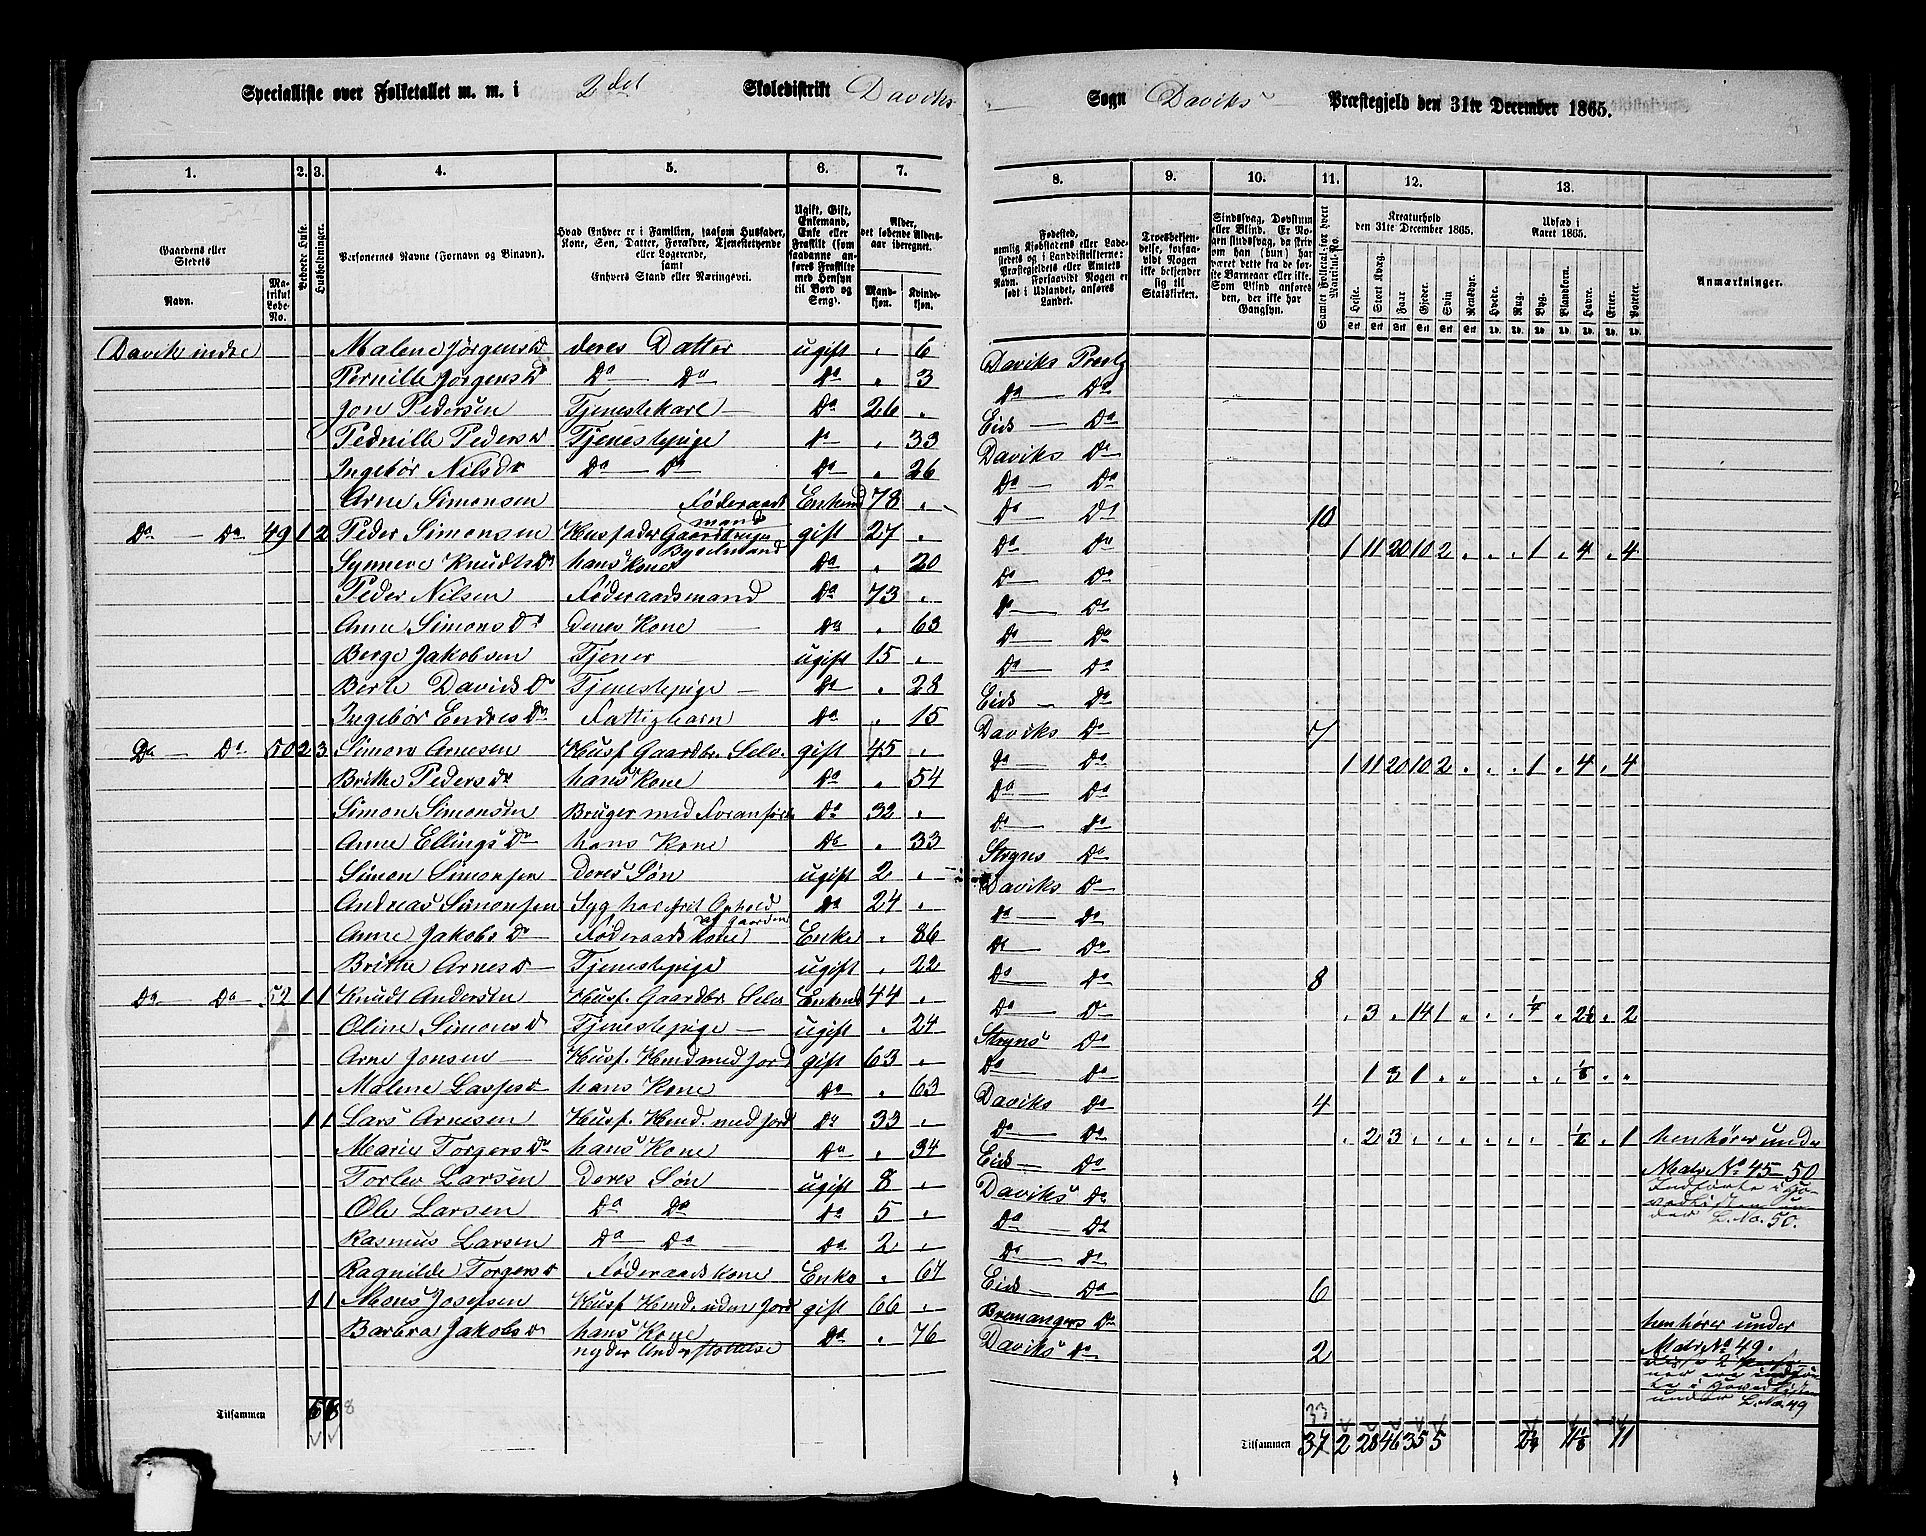 Specialliste over Folketallet m. m. i 2det Skoledistrikt Daviks Sogn Daviks Præstegjeld den 31te December 1865.
1. 2. 3. 4. 5. 6. 7. 8. 9. 10. 11. 12. 13.
Gaardens eller Stedets Navn. Matrikul Løbe-No.
Beboede Huse. Husholdninger.
Personernes Navne (Fornavn og Binavn).
Hvad Enhver er i Familien, saasom Husfader, Kone, Søn, Datter, Forældre, Tjenestetyende eller Logerende, samt Enhvers Stand eller Næringsvei.
Ugift, Gift, Enkemand, Enke eller Fraskilt (som saadanne anføres Fraskilte med Hensyn til Bord og Seng).
Alder, det løbende Aldersaar iberegnet. Mandkjøn. Kvindekjøn.
Anmærkninger.
Davik indre Malene Jørgensd deres Datter ugift " 6 Daviks Præstg
Pernille Jørgensd Do Do Do " 3 Do Do
Jon Pedersen Tjenestekarl Do 26 " Eids Do
Pednille Pedersd Tjenestepige Do " 33 Daviks Do
Ingebor Nilsdr Do Do Do " 26 Do Do
Arne Simonsen Føderaadsmand Enkemd 78 " Do Do 10
Do Do 49 1 2 Peder Simonsen Husfader Gaardbruger Bygselmand gift 27 " Do Do 1 11 20 10 2 " " " 1 " 4 " 4
Synneve Knudtsdr hans Kone Do " 20 Do Do
Peder Nilsen Føderaadsmand Do 73 " Do Do
Anne Simonsdr Deres Kone Do " 63 Do Do
Berge Jakobsen Tjener ugift 15 " Do Do
Berte Davidsdr Tjenestepige Do " 28 Eids Do
Ingebor Endresdr Fattigbarn Do " 15 Daviks Do 7
Do Do 50 2 3 Simon Arnesen Husf Gaardbr. Selv. gift 45 " Do Do 1 11 20 10 2 " " " 1 " 4 " 4
Brithe Pedersdr hans Kone Do " 54 Do Do
Simon Simonsen Bruger med Foranførte Do 32 " Do Do
Anne Ellingsdr hans Kone Do " 33 Stryns Do
Simon Simonsen Deres Søn ugift 2 " Daviks Do
Andreas Simonsen Syg har frit Ophold af Gaarden Do 24 " Do Do
Anne Jakobsdr Føderaadskone Enke " 86 Do Do
Brithe Arnesd Tjenestepige ugift " 22 Do Do 8
Do Do 52 1 1 Knudt Andersen Husf. Gaardbr. Selv Enkemd 44 " Do Do " 3 " 14 1 " " " 1/4 " 2 1/2 " 2
Oline Simonsd Tjenestepige ugift " 24 Stryns Do
Arne Jonsen Husf. Hmd med Jord gift 63 " Do Do 1 3 1 " " " " 1/8 " "
Malene Laspsd hans Kone Do " 63 Daviks Do 4
1 1 Lars Arnesen Husf. Hmd. med Jord Do 33 " Do Do " 2 3 " " " " " " 1/2 " 1 henhører under
Marie Torgersdr hans Kone Do " 34 Eids Do Matr. No 45-50
Torlev Larsen Deres Søn ugift 8 " Daviks Do Indførte i Hovedlisten under L. No. 50.
Ole Larsen Do Do Do 5 " Do Do
Rasmus Larsen Do Do Do 2 " Do Do
Ragnilde Torgersd Føderaadskone Enke " 67 Eids Do 6
1 1 Mons Josefsen Husf Hmd. uden Jord gift 66 " Bremangers Do henhører under
Barbra Jakobsd hans Kone nyder Understøttelse Do " 76 Daviks Do 2 Matr No 49.
disse 2 Personer ere indførte i Hovedlisten under L. No. 49
Tilsammen 6 8 8
33
Tilsammen 37 2 28 46 35 5 2 1/4 11 1/8 11